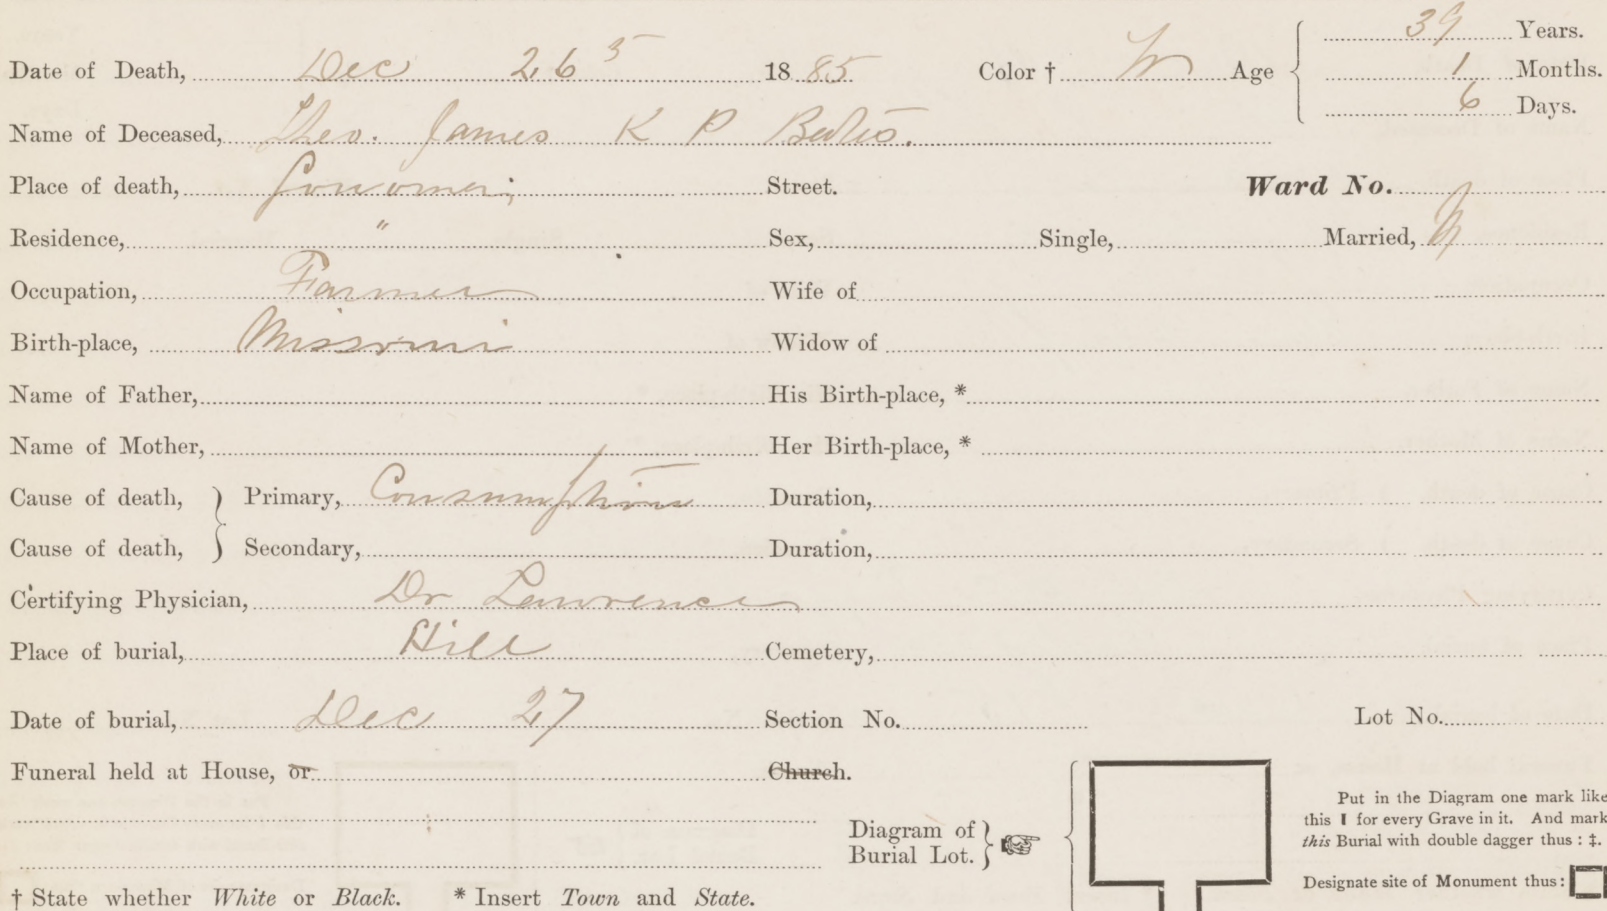 Date of Death, Dec 26 5 1885 Color † W Age 39 Years.
1 Months.
6 Days.
Name of Deceased, Theo. James K P Bates.
Place of death, Street. Ward No.
Residence, " Sex, Single, Married, M
Occupation, Farmer Wife of
Birth-place, Missouri Widow of
Name of Father, His Birth-place, *
Name of Mother, Her Birth-place, *
Cause of death, } Primary, Consumption Duration,
Cause of death, } Secondary, Duration,
Certifying Physician, Dr Lawrence
Place of burial, Hill Cemetery,
Date of burial, Dec 27 Section No. Lot No.
Funeral held at House, or Church.
Diagram of
Burial Lot.
Put in the Diagram one mark like
this I for every Grave in it. And mark
this Burial with double dagger thus : ‡.
Designate site of Monument thus:
† State whether White or Black. * Insert Town and State.